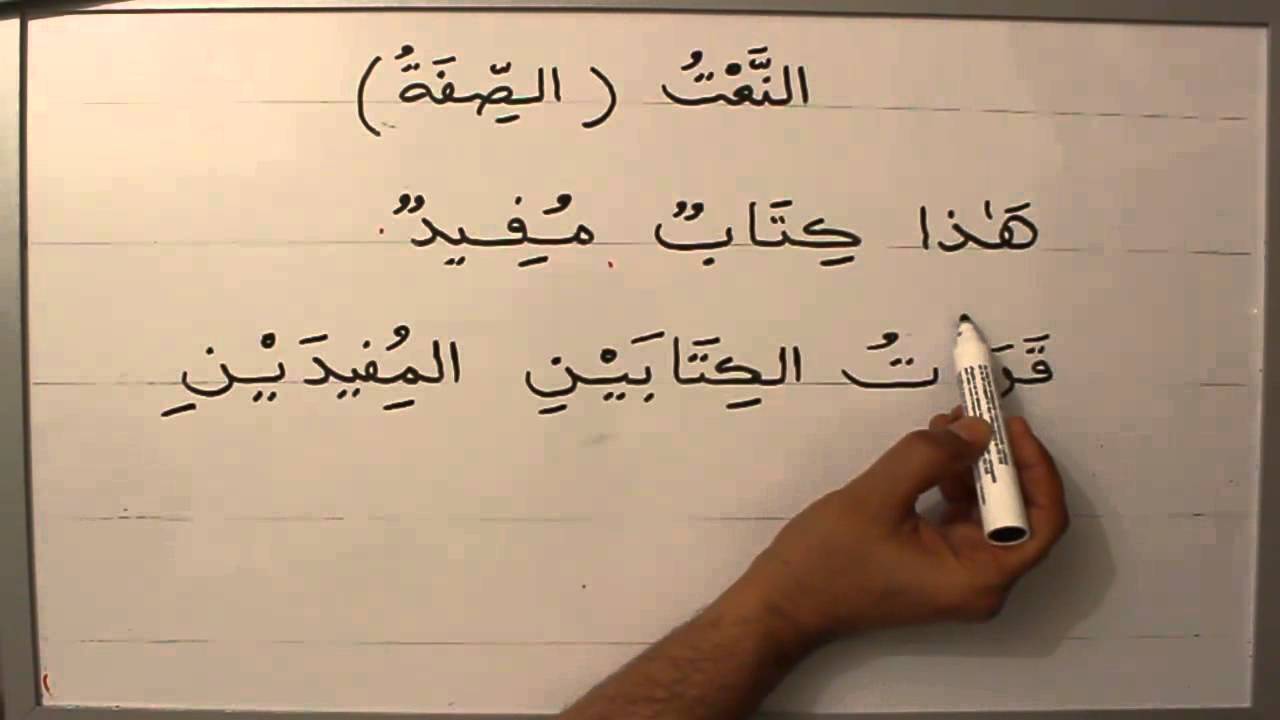 النَّعْتُ (الصِّفَةُ)
هَٰذا كِتَابٌ مُفِيدٌ
الكِتَابَيْنِ المُفِيدَيْنِ